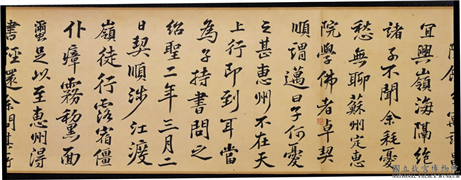 宜興嶺海隔絶
諸子不聞余耗憂
愁無聊蘇州定惠
院學佛者卓契
順謂邁曰子何憂
之甚惠州不在天
上行即到耳當
為子持書問之
紹聖二年三月二
日契順涉江渡
嶺徒行露宿僵
仆瘴霧黧面
繭足以至惠州得
書逕還余問其所
國立故宮博物院